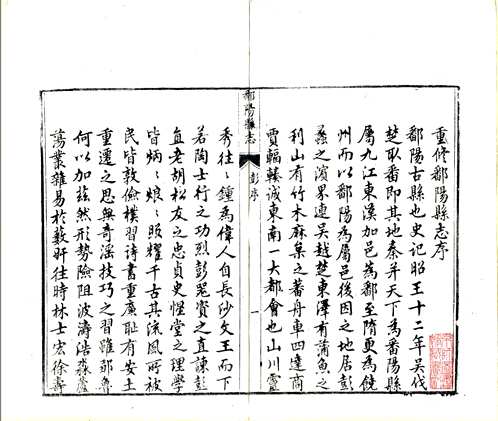 重修鄱陽縣志序
鄱陽古縣也史記昭王十二年吳伐
楚取番即其地秦并天下為番陽縣
屬九江東漢加邑為鄱至隋更為饒
州而以鄱陽為屬邑後因之地居彭
蠡之濱界連吳越楚東澤有蒲魚之
利山有竹木麻枲之蕃舟車四達商
賈輻輳誠東南一大都會也山川靈
鄱陽縣志
彭序
一
秀往〻鍾為偉人自長沙文王而下
若陶士行之功烈彭器資之直諫彭
直老胡松友之忠貞史惺堂之理學
皆炳〻烺〻照耀千古其流風所被
民皆敦儉樸習詩書重廉恥有安土
重遷之思無奇淫技巧之習雖鄒魯
何以加茲然形勢險阻波濤浩淼萑
蕩叢雜易於藪奸往時林士宏徐壽